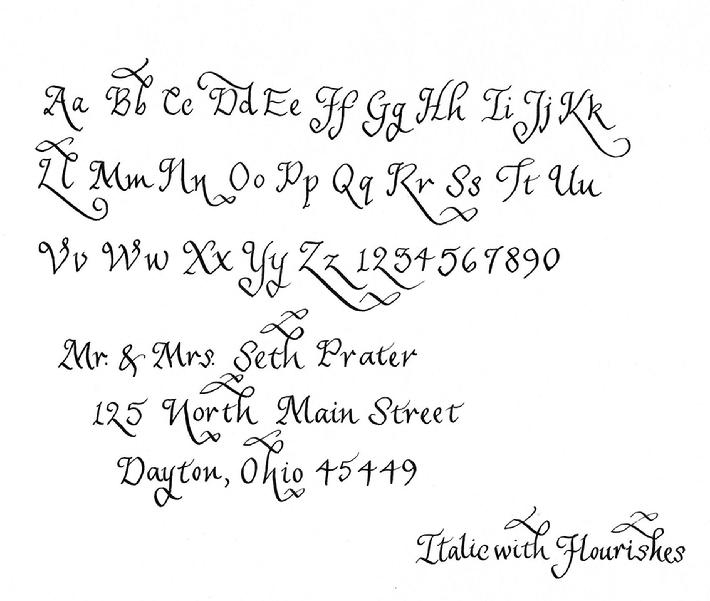 Aa Bb Cc Dd Ee Ff Gg Hh Ii Jj Kk
Ll Mm Nn Oo Pp Qq Rr Ss Tt Uu
Vv Ww Xx Yy Zz 1234567890
Mr. & Mrs. Seth Prater
125 North Main Street
Dayton, Ohio 45449
Italic with Flourishes